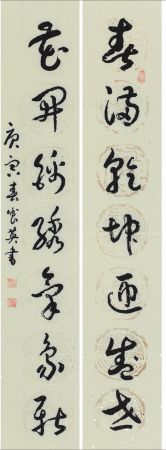 春满乾坤迎盛世
花开锦绣气象新
庚寅春月英书